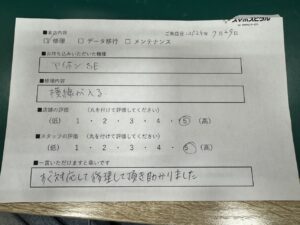 スマホスピタル
■来店内容 ご来店日:2024年 9月29日
☑ 修理 □ データ移行 □ メンテナンス
■お持ち込みいただいた機種
アイホン SE
■修理内容
横線が入る
■店舗の評価 (丸を付けて評価してください)
(低) 1 ・ 2 ・ 3 ・ 4 ・ 5 (高)
■スタッフの評価 (丸を付けて評価してください)
(低) 1 ・ 2 ・ 3 ・ 4 ・ 5 (高)
■一言いただけますと幸いです
すぐ対応して修理して頂き助かりました